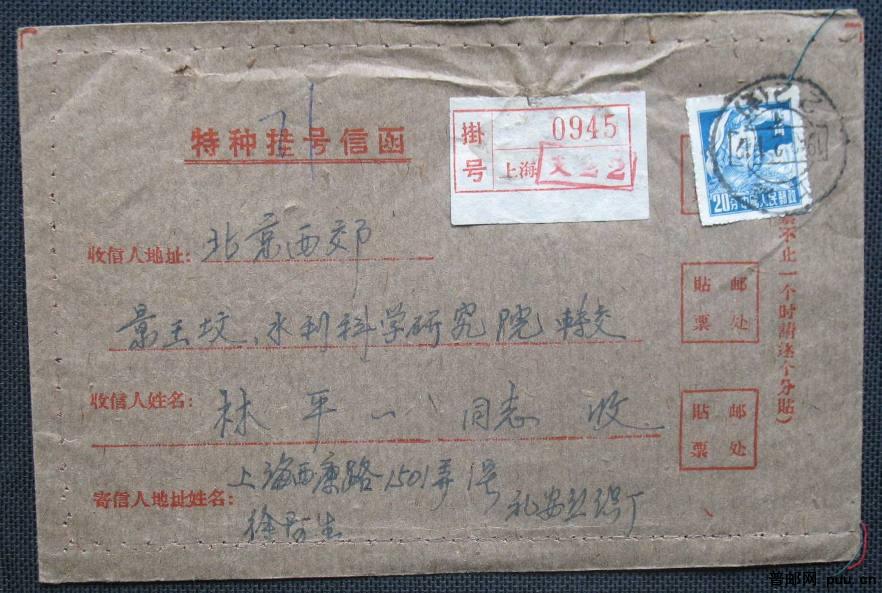 特种挂号信函
掛号
0945
上海
20分中国人民邮政
收信人地址:北京西郊
景王坟、水利科学研究院轉交
收信人姓名:林平 同志 收
寄信人地址姓名:上海西康路1501弄1号
徐 生
貼邮票处
貼邮票处
不止一个时請逐个分貼)
普邮网 puu.cn